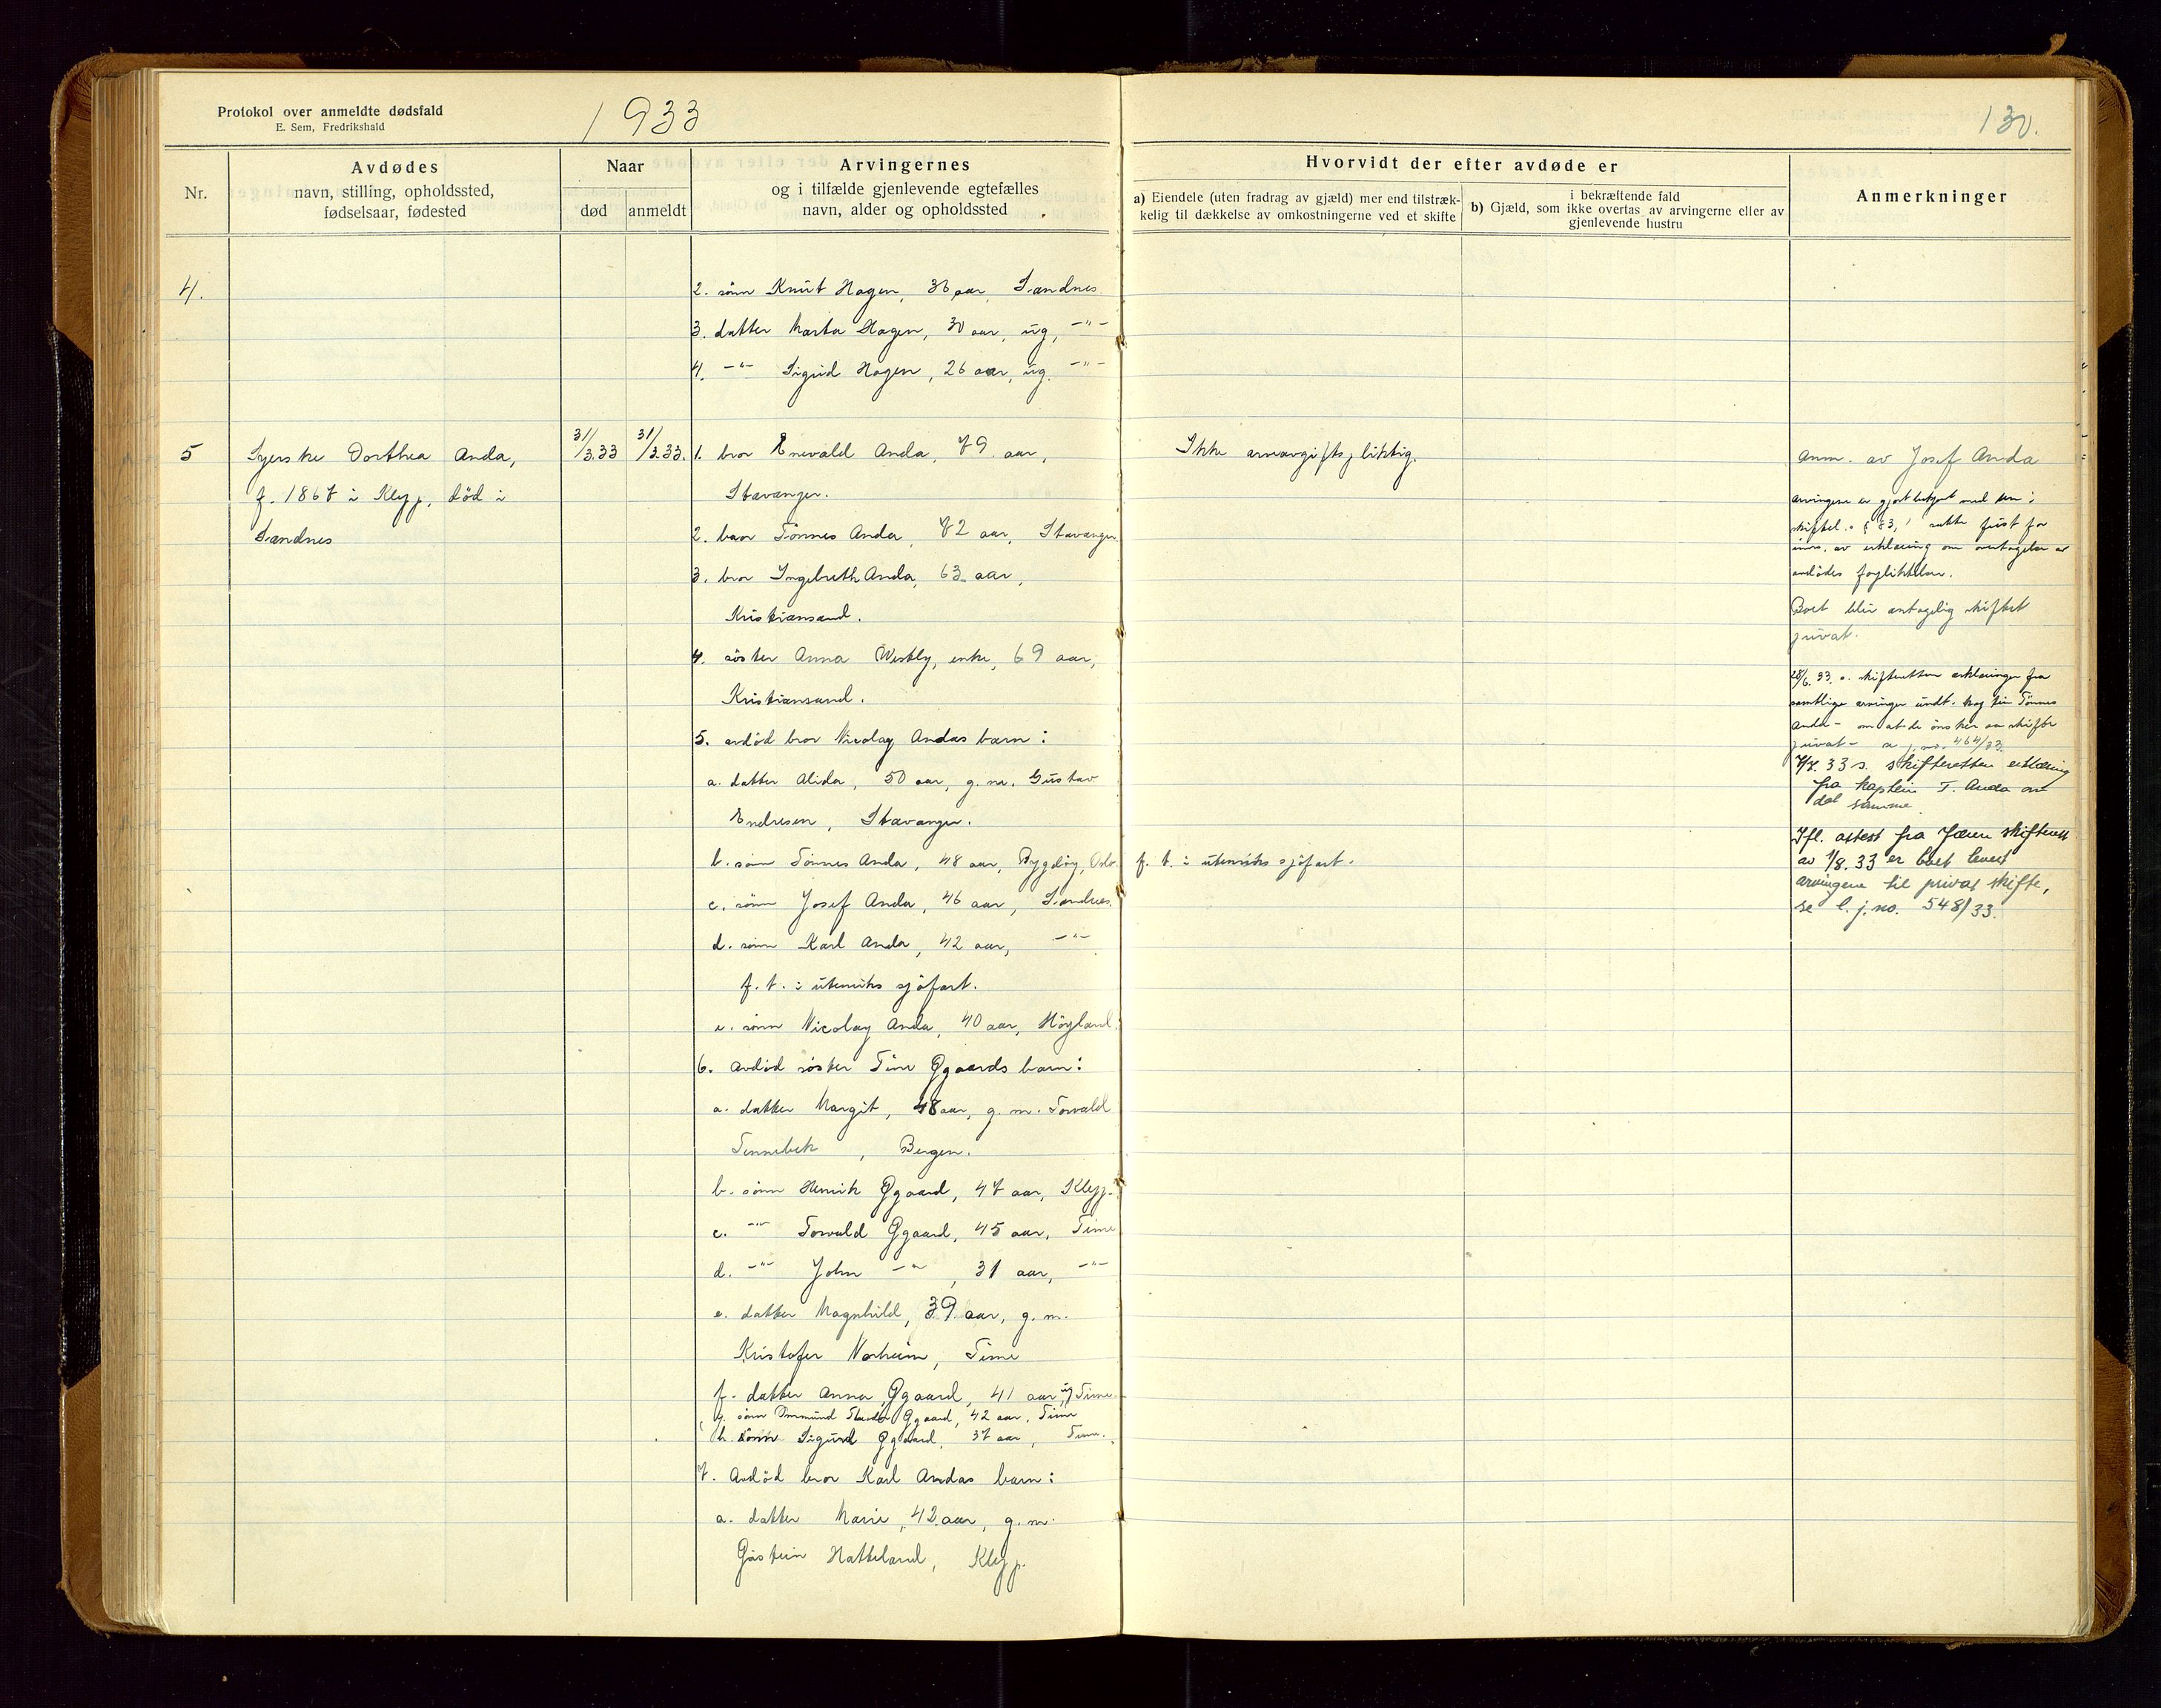 Protokol over anmeldte dødsfald
E. Sem, Fredrikshald
1933
130.
Nr.
Avdødes
navn, stilling, opholdssted,
fødselsaar, fødested
Naar
død
anmeldt
Arvingernes
og i tilfælde gjenlevende egtefælles
navn, alder og opholdssted
Hvorvidt der efter avdøde er
a) Eiendele (uten fradrag av gjæld) mer end tilstræk-
kelig til dækkelse av omkostningerne ved et skifte
i bekræftende fald
b) Gjæld, som ikke overtas av arvingerne eller av
gjenlevende hustru
Anmerkninger
4.
2. sönn Knut Hagen, 36 aar, Sandnes
3. datter Marta Hagen, 30 aar, ug, -"-
4. -"- Sigrid Hagen, 26 aar, ug. -"-
5
Syerske Dorthea Anda,
f. 1867 i Klepp, död i
Sandnes
31/3.33
31/3.33.
1. bror Enevald Anda, 79 aar,
Stavanger.
2. bror Tönnes Anda, 72 aar, Stavanger.
3. bror Ingebreth Anda, 63 aar,
Kristiansand.
4. söster Anna Westly, enke, 69 aar,
Kristiansand.
5. avdöd bror Nicolay Andas barn:
a. datter Alida, 50 aar, g. m. Gustav
Endresen, Stavanger.
b. sönn Tönnes Anda, 48 aar, Bygdöy, Oslo. f. t. i utenriks sjöfart.
c. sönn Josef Anda, 46 aar, Sandnes.
d. sönn Karl Anda, 42 aar, -"-
f. t. i utenriks sjöfart.
e. sönn Nicolay Anda, 40 aar, Höyland.
6. Avdöd söster Tine Øgaards barn:
a. datter Margit, 48 aar, g. m. Torvald
Tennebek, Bergen.
b. sönn Henrik Øgaard, 47 aar, Klepp.
c. -"- Torvald Øgaard, 45 aar, Time
d. -"- John -"-, 31 aar, -"-
e. datter Magnhild, 39 aar, g. m.
Kristofer Norheim, Time
f. datter Anna Øgaard, 41 aar, ug Time
g. sönn Ommund Øgaard, 42 aar, Time
h. sönn Sigurd Øgaard, 37 aar, Time.
7. Avdöd bror Karl Andas barn:
a. datter Marie, 42 aar, g. m.
Gustein Hatteland, Klepp.
Ikke arveavgiftspliktig.
Anm. av Josef Anda
arvingene er gjort bekjent med
skiftel. § 83, satte frist for
inns. av erklæring om overtagelse av
avdödes forpliktelser.
Boet blir antagelig skiftet
privat.
28/6.33. s. skifteretten erklæringer fra
samtlige arvinger undt. Tönnes
Anda - om at de önsker aa skifte
privat - se j. no. 464/33.
7/7.33 s. skifteretten erklæring
fra kaptein T. Anda om
det samme
Ifl. attest fra Jæren skifterett
av 1/8.33 er boet levert
arvingene til privat skifte,
se l. j. no. 548/33.